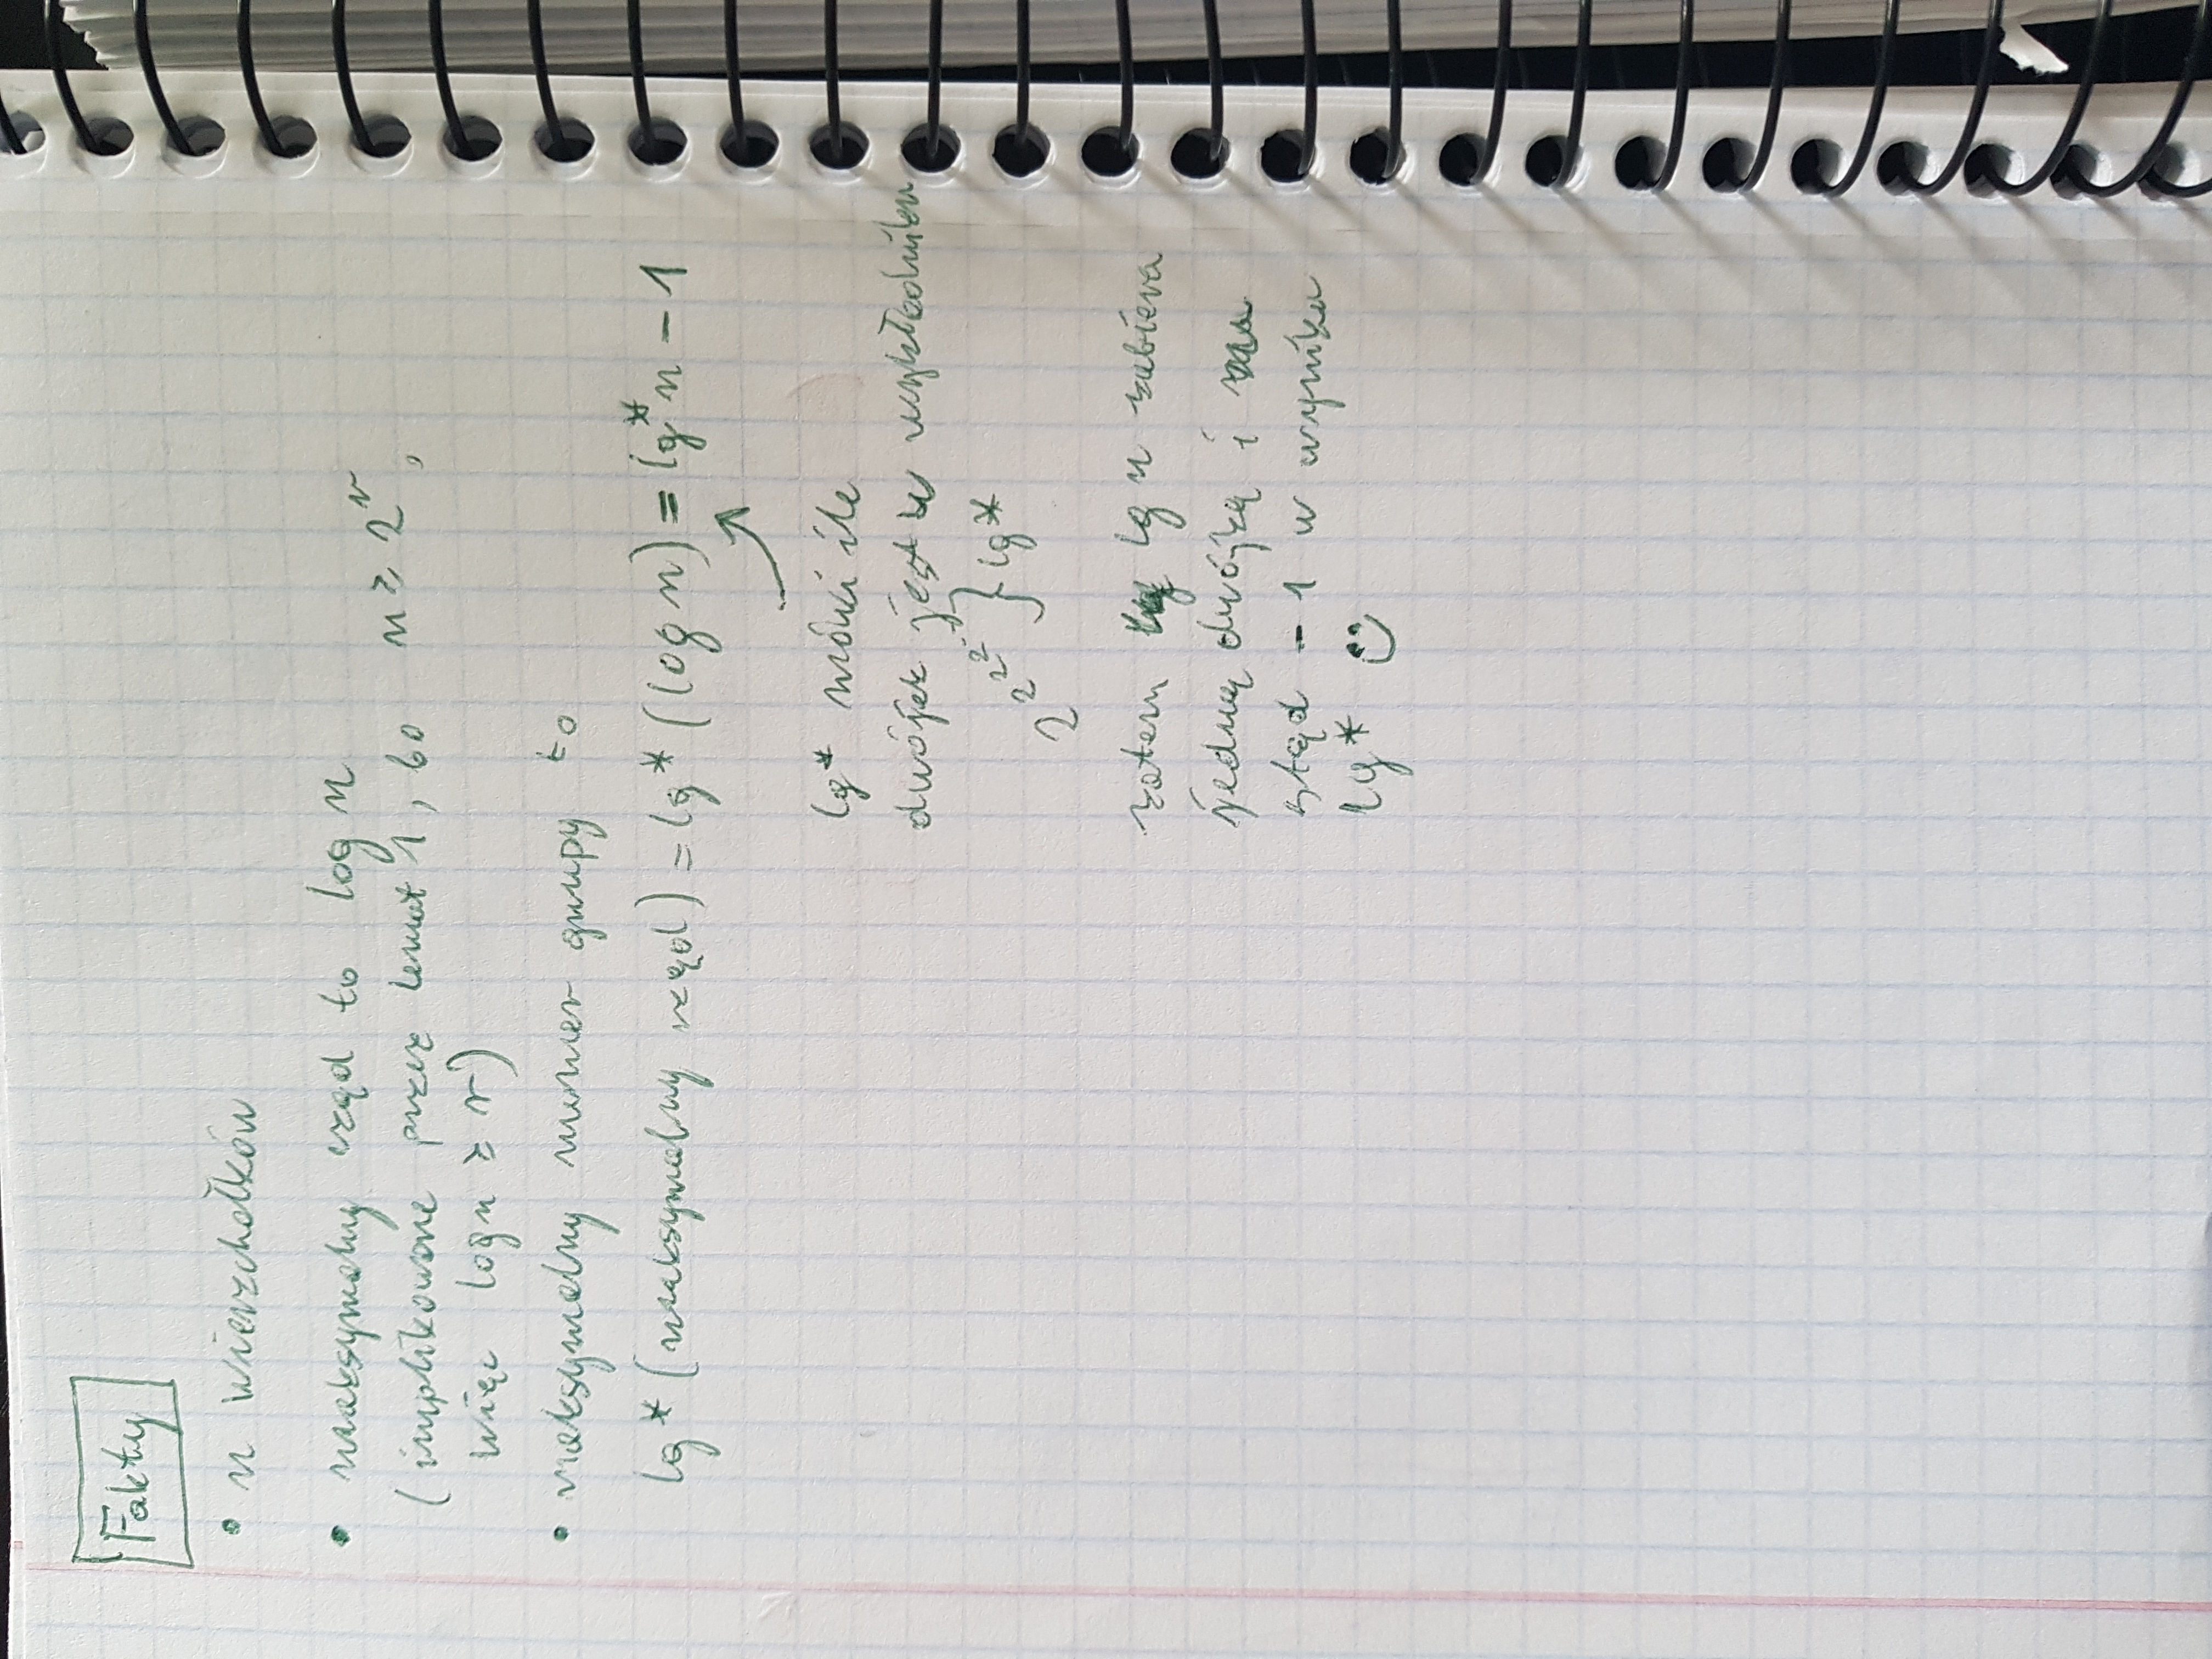 Fakty
• n wierzchołków
• maksymalny rząd to log n
(implikowane przez lemat 1, bo n ≥ 2^r,
więc log n ≥ r)
• maksymalny numer grupy to
lg* (maksymalny rząd) = lg* (log n) = lg* n - 1
lg* mówi ile
dwójek jest w wykładniku
2^2^2^2^... } lg*
zatem lg n zabiera
jedną dwójkę i
stąd - 1 w wyniku
lg* :)